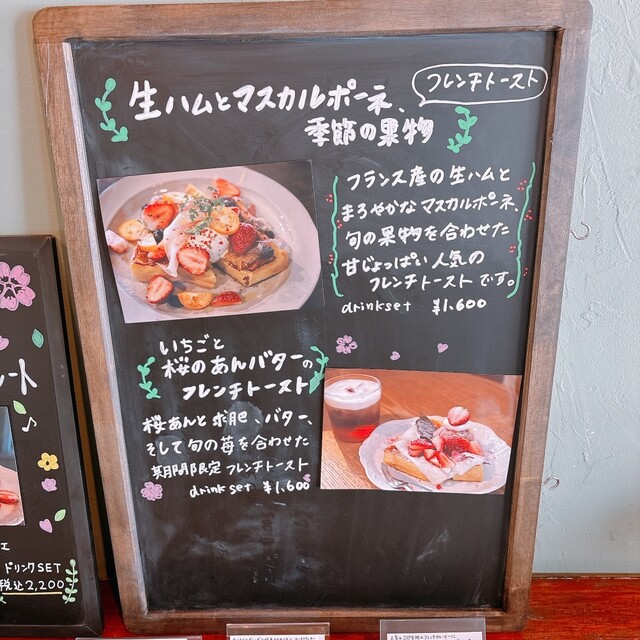 生ハムとマスカルポーネ、
季節の果物
フレンチトースト
フランス産の生ハムと
まろやかなマスカルポーネ、
旬の果物を合わせた
甘じょっぱい人気の
フレンチトーストです。
drinkset ¥1,600
いちごと
桜のあんバターの
フレンチトースト
桜あんと求肥、バター、
そして旬の苺を合わせた
期間限定フレンチトースト
drink set ¥1,600
レート
ェ
ドリンクSET
税込2,200